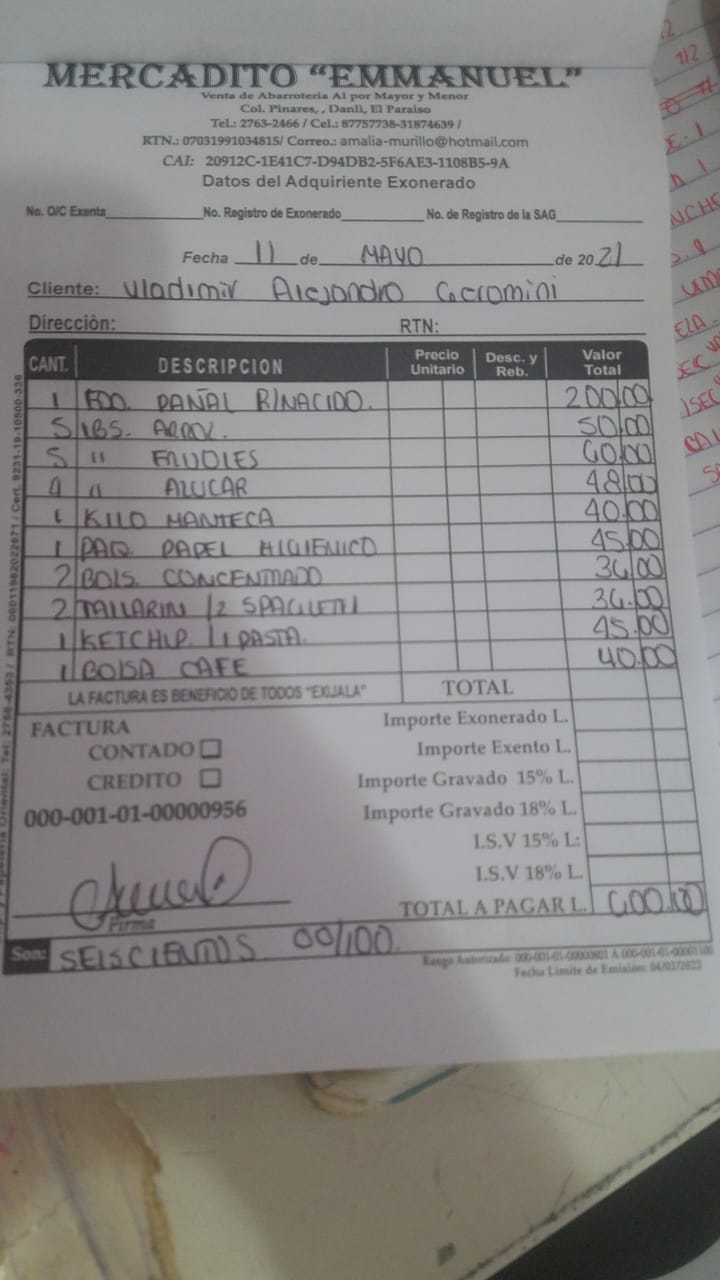 MERCADITO “EMMANUEL”
Venta de Abarroteria Al por Mayor y Menor
Col. Pinares, , Danlì, El Paraiso
Tel.: 2763-2466 / Cel.: 87757738-31874639 /
RTN.: 07031991034815/ Correo.: amalia-murillo@hotmail.com
CAI: 20912C-1E41C7-D94DB2-5F6AE3-1108B5-9A
Datos del Adquiriente Exonerado
No. O/C Exenta No. Registro de Exonerado No. de Registro de la SAG
Fecha 11 de MAYO de 2021
Cliente: Vladimir Alejandro
Direcciòn: RTN:
CANT. DESCRIPCION Precio Unitario Desc. y Reb. Valor Total
1 PAÑAL R/NACIDO. 200.00
5 lbs. 50.00
5 " 60.00
4 " AZUCAR 48.00
1 KILO MANTECA 40.00
1 PAQ. PAPEL HIGIENICO 45.00
2 BOLS. CONCENTRADO 36.00
2 TALLARIN /2 SPAGUETTI 36.00
1 KETCHUP /1 PASTA. 45.00
1 BOLSA CAFE 40.00
LA FACTURA ES BENEFICIO DE TODOS “EXIJALA” TOTAL
FACTURA Importe Exonerado L.
CONTADO Importe Exento L.
CREDITO Importe Gravado 15% L.
000-001-01-00000956 Importe Gravado 18% L.
I.S.V 15% L:
I.S.V 18% L.
Firma TOTAL A PAGAR L. 600.00
Son: SEISCIENTOS 00/100.
Rango Autorizado: 000-001-01-00000801 A 000-001-01-00001100
Fecha Limite de Emisiòn: 04/03/2022